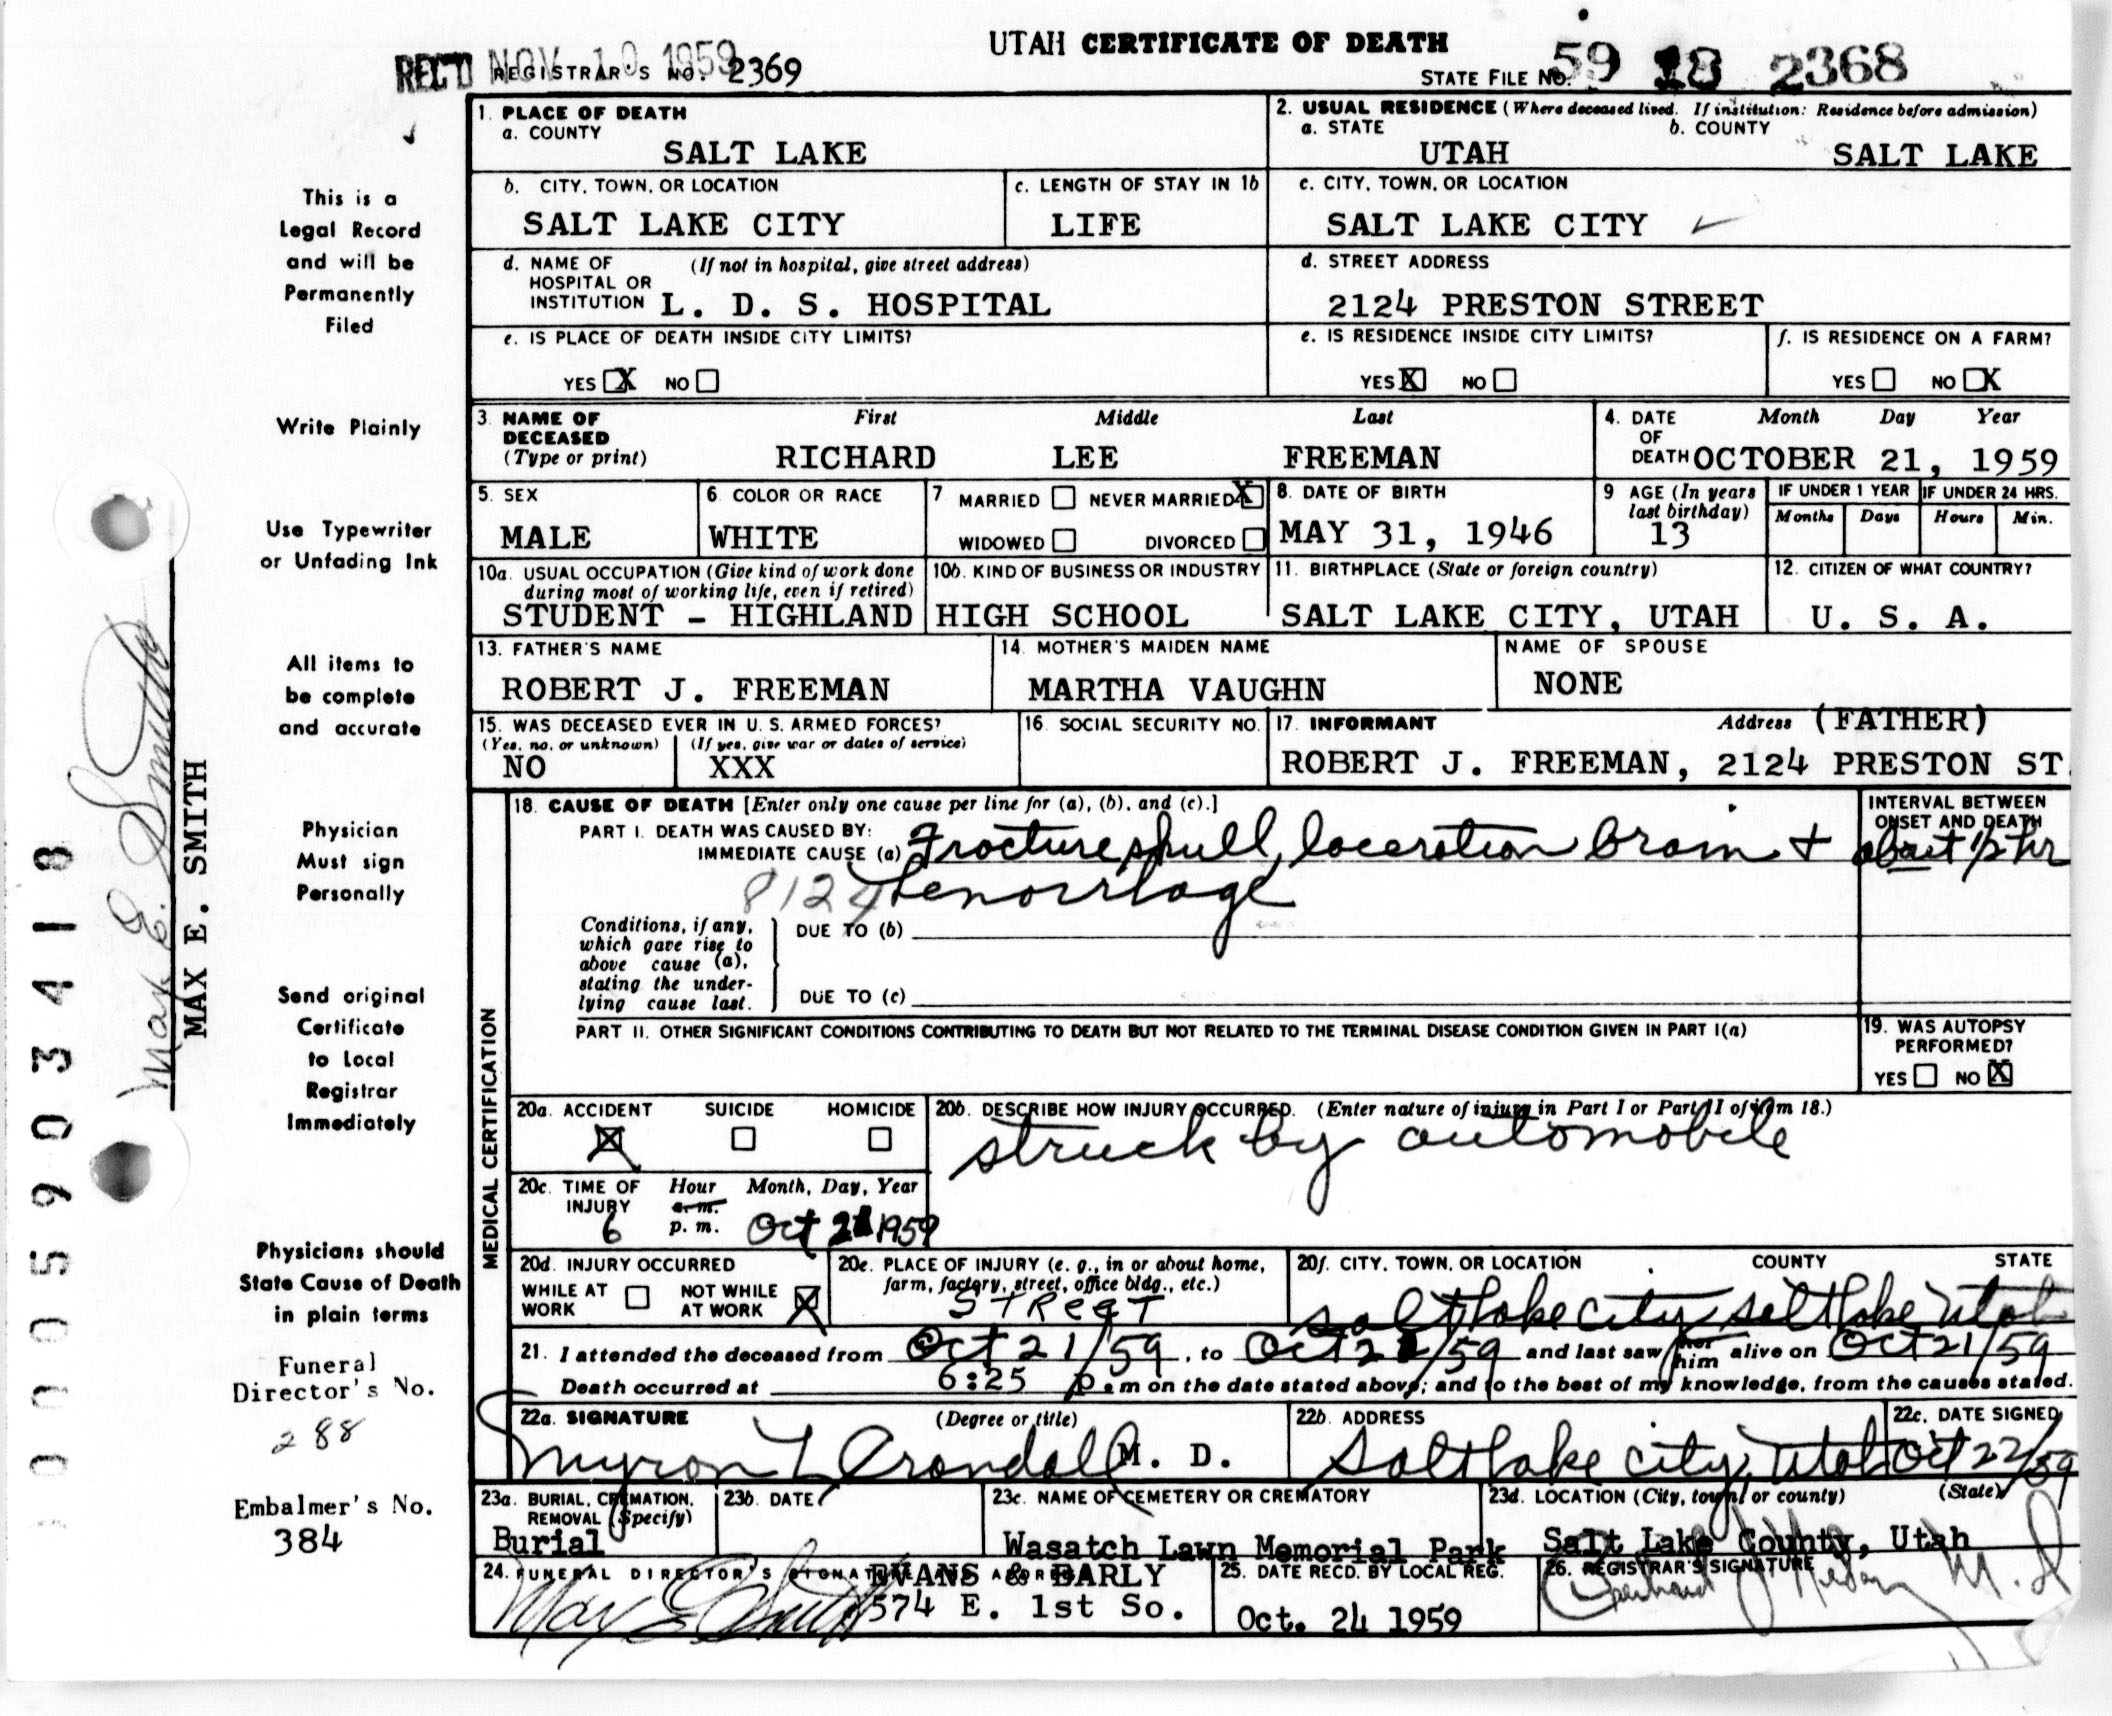 UTAH CERTIFICATE OF DEATH
REC'D NOV 10 1959
REGISTRAR'S NO. 2369
STATE FILE NO. 59 18 2368
1. PLACE OF DEATH
a. COUNTY
SALT LAKE
2. USUAL RESIDENCE (Where deceased lived. If institution: Residence before admission)
a. STATE b. COUNTY
UTAH SALT LAKE
b. CITY, TOWN, OR LOCATION
SALT LAKE CITY
c. LENGTH OF STAY IN 1b
LIFE
c. CITY, TOWN, OR LOCATION
SALT LAKE CITY
d. NAME OF HOSPITAL OR INSTITUTION (If not in hospital, give street address)
L. D. S. HOSPITAL
d. STREET ADDRESS
2124 PRESTON STREET
e. IS PLACE OF DEATH INSIDE CITY LIMITS?
YES X NO
e. IS RESIDENCE INSIDE CITY LIMITS?
YES X NO
f. IS RESIDENCE ON A FARM?
YES NO X
3. NAME OF DECEASED (Type or print)
First Middle Last
RICHARD LEE FREEMAN
4. DATE OF DEATH Month Day Year
OCTOBER 21, 1959
5. SEX
MALE
6. COLOR OR RACE
WHITE
7 MARRIED NEVER MARRIED X
WIDOWED DIVORCED
8. DATE OF BIRTH
MAY 31, 1946
9 AGE (In years last birthday)
13
IF UNDER 1 YEAR IF UNDER 24 HRS.
Months Days Hours Min.
10a. USUAL OCCUPATION (Give kind of work done during most of working life, even if retired)
STUDENT - HIGHLAND
10b. KIND OF BUSINESS OR INDUSTRY
HIGH SCHOOL
11. BIRTHPLACE (State or foreign country)
SALT LAKE CITY, UTAH
12. CITIZEN OF WHAT COUNTRY?
U. S. A.
13. FATHER'S NAME
ROBERT J. FREEMAN
14. MOTHER'S MAIDEN NAME
MARTHA VAUGHN
NAME OF SPOUSE
NONE
15. WAS DECEASED EVER IN U. S. ARMED FORCES?
(Yes, no, or unknown) (If yes, give war or dates of service)
NO XXX
16. SOCIAL SECURITY NO.
17. INFORMANT Address (FATHER)
ROBERT J. FREEMAN, 2124 PRESTON ST.
MEDICAL CERTIFICATION
18. CAUSE OF DEATH [Enter only one cause per line for (a), (b), and (c).]
PART I. DEATH WAS CAUSED BY:
IMMEDIATE CAUSE (a) Fracture skull, laceration brain +
8124 hemorrhage
INTERVAL BETWEEN ONSET AND DEATH
about 1/2 hr
Conditions, if any, which gave rise to above cause (a), stating the underlying cause last.
DUE TO (b)
DUE TO (c)
PART II. OTHER SIGNIFICANT CONDITIONS CONTRIBUTING TO DEATH BUT NOT RELATED TO THE TERMINAL DISEASE CONDITION GIVEN IN PART I(a)
19. WAS AUTOPSY PERFORMED?
YES NO X
20a. ACCIDENT SUICIDE HOMICIDE
X
20b. DESCRIBE HOW INJURY OCCURRED. (Enter nature of injury in Part I or Part II of item 18.)
struck by automobile
20c. TIME OF INJURY Hour Month, Day, Year
a.m.
6 p. m. Oct 21 1959
20d. INJURY OCCURRED
WHILE AT WORK NOT WHILE AT WORK X
20e. PLACE OF INJURY (e. g., in or about home, farm, factory, street, office bldg., etc.)
STREET
20f. CITY, TOWN, OR LOCATION COUNTY STATE
Salt Lake City Salt Lake Utah
21. I attended the deceased from Oct 21/59, to Oct 21/59 and last saw her him alive on Oct 21/59
Death occurred at 6:25 p.m on the date stated above; and to the best of my knowledge, from the causes stated.
22a. SIGNATURE (Degree or title)
Myron L Crandall M. D.
22b. ADDRESS
Salt Lake City, Utah
22c. DATE SIGNED
Oct 22/59
23a. BURIAL, CREMATION, REMOVAL (Specify)
Burial
23b. DATE
23c. NAME OF CEMETERY OR CREMATORY
Wasatch Lawn Memorial Park
23d. LOCATION (City, town, or county) (State)
Salt Lake County, Utah
24. FUNERAL DIRECTOR'S SIGNATURE AND ADDRESS
EVANS & EARLY
Max E Smith 574 E. 1st So.
25. DATE RECD. BY LOCAL REG.
Oct. 24 1959
26. REGISTRAR'S SIGNATURE
M.D
This is a
Legal Record
and will be
Permanently
Filed
Write Plainly
Use Typewriter
or Unfading Ink
All items to
be complete
and accurate
Physician
Must sign
Personally
Send original
Certificate
to Local
Registrar
Immediately
Physicians should
State Cause of Death
in plain terms
Funeral
Director's No.
288
Embalmer's No.
384
Max E. Smith
MAX E. SMITH
0005903418